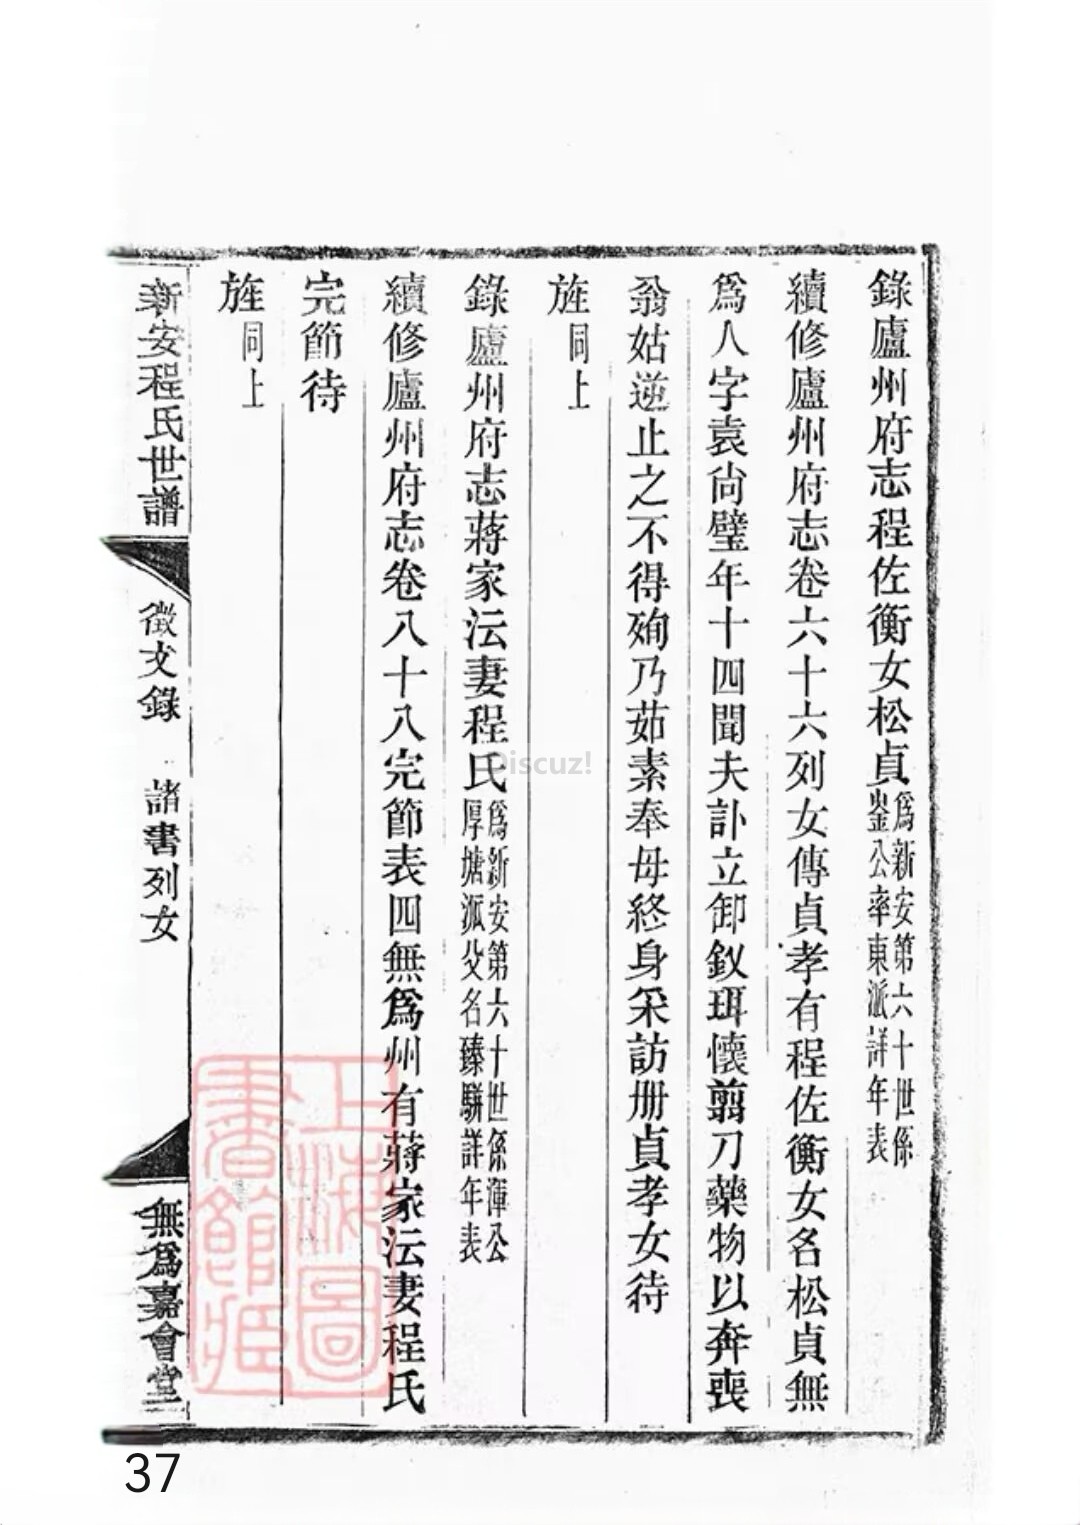 錄廬州府志程佐衡女松貞爲新安第六十世係
鉴公率東派詳年表
續修廬州府志卷六十六列女傳貞孝有程佐衡女名松貞無
爲人字袁尙璧年十四聞夫訃立卸釵珥懷翦刀藥物以奔喪
翁姑逆止之不得殉乃茹素奉母終身采訪册貞孝女待
旌同上
錄廬州府志蔣家沄妻程氏爲新安第六十世係渾公
厚塘派父名臻駢詳年表
續修廬州府志卷八十八完節表四無爲州有蔣家沄妻程氏
完節待
旌同上
新安程氏世譜
徵文錄
諸書列女
無爲嘉會堂
上海圖
書館藏
Discuz!
37